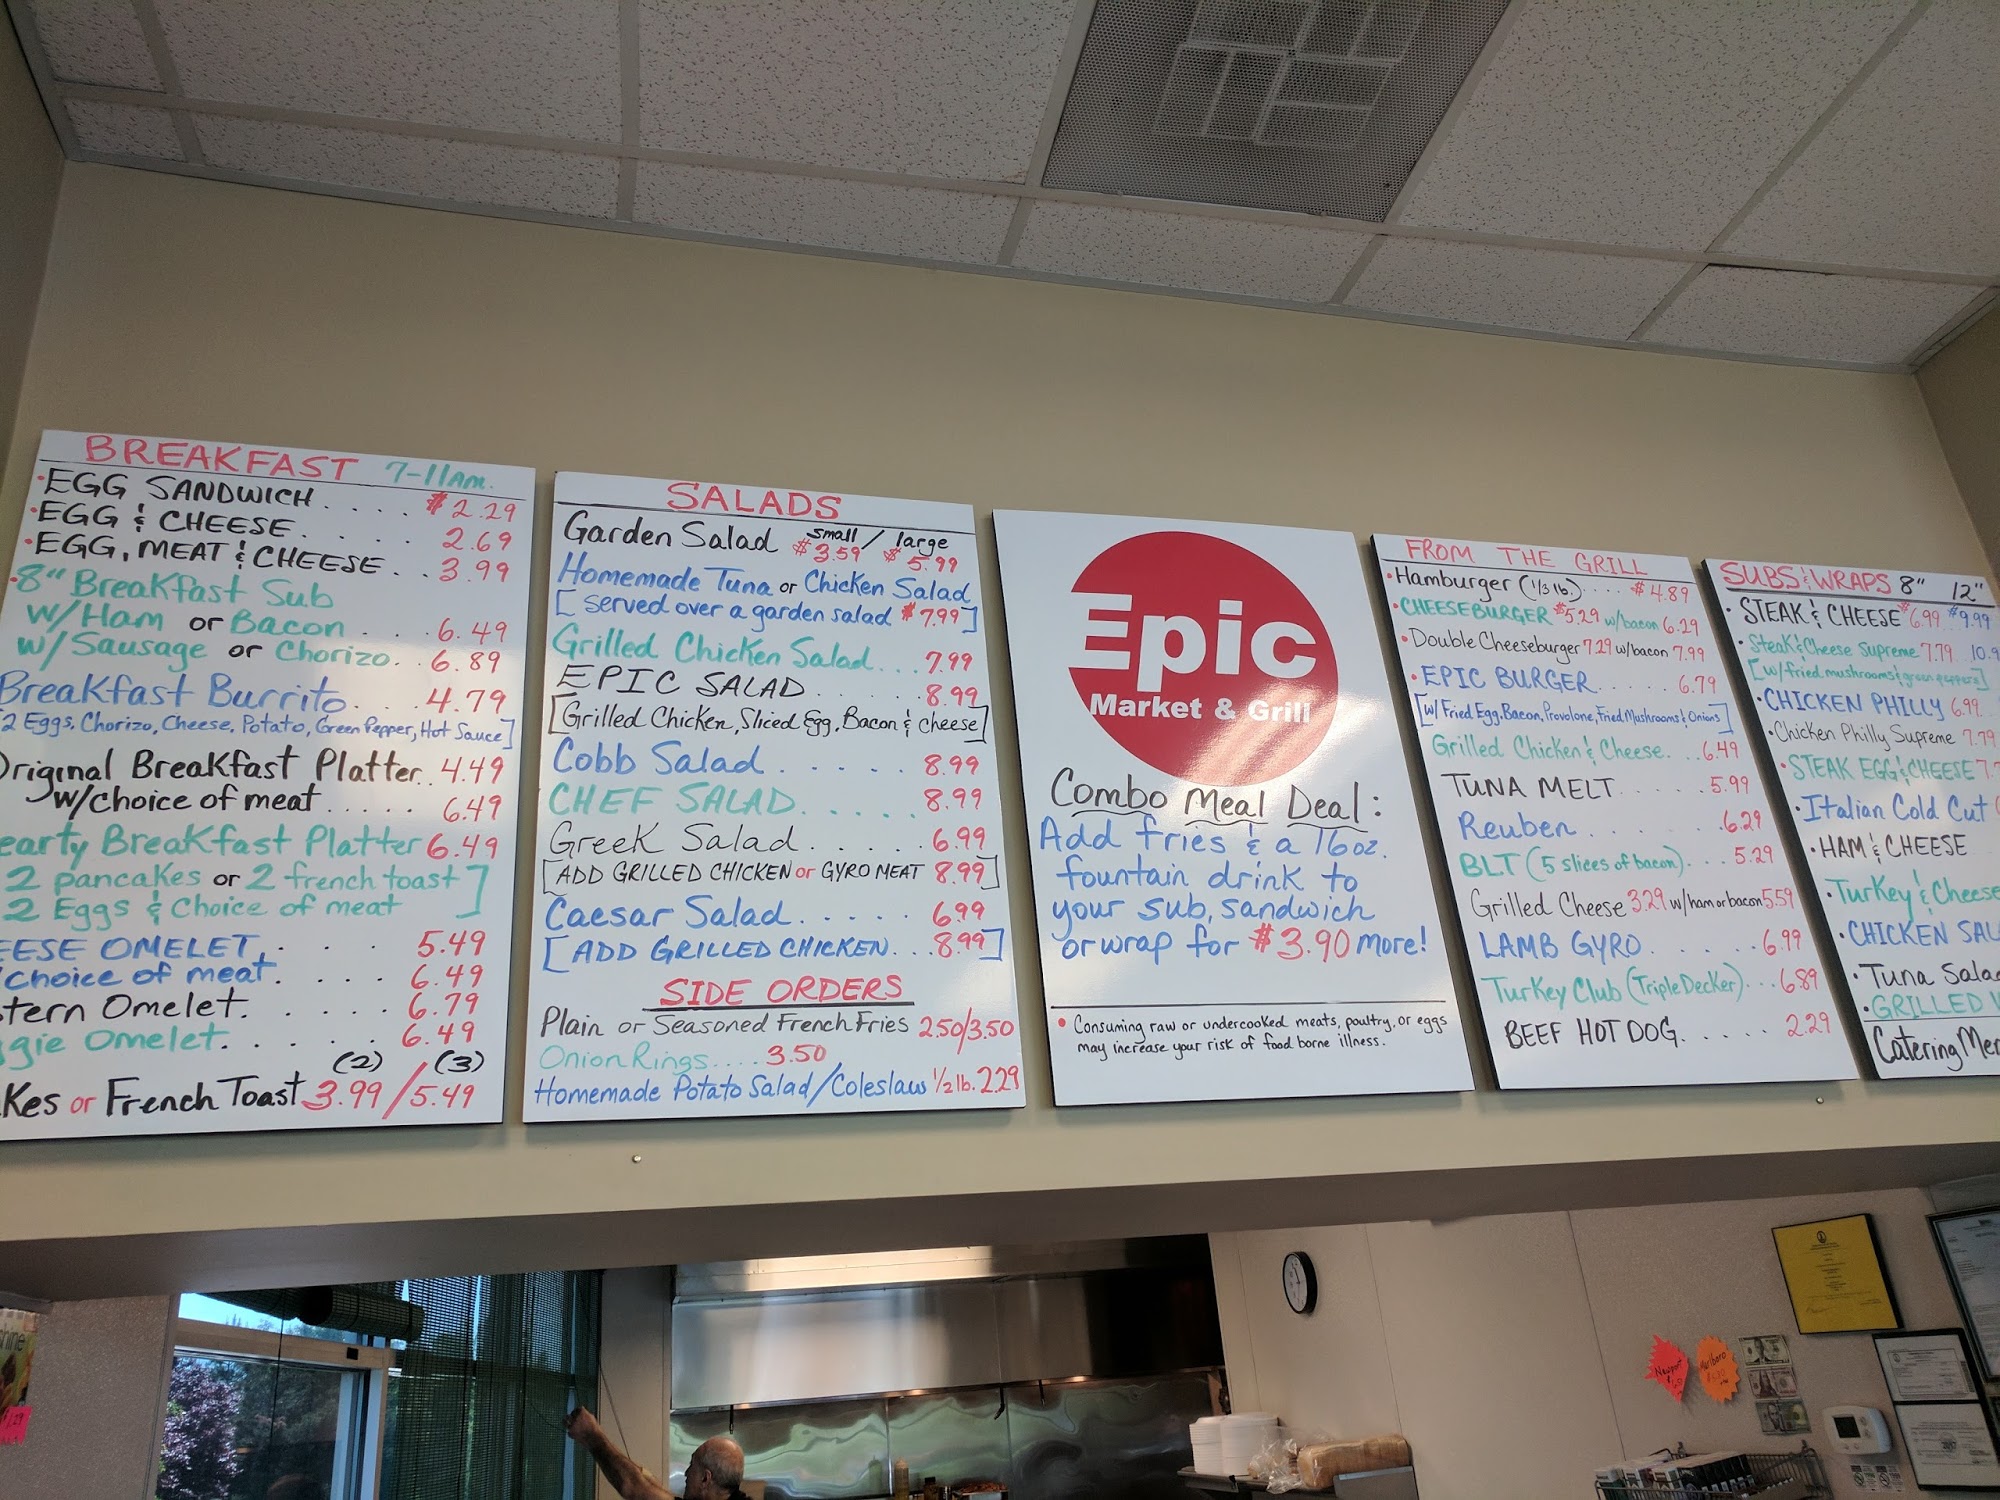 BREAKFAST 7-11AM.
• EGG SANDWICH.... $2.29
• EGG & CHEESE..... 2.69
• EGG, MEAT & CHEESE.. 3.99
• 8" Breakfast Sub
w/Ham or Bacon... 6.49
w/Sausage or Chorizo.. 6.89
Breakfast Burrito... 4.79
2 Eggs, Chorizo, Cheese, Potato, Green Pepper, Hot Sauce]
Original Breakfast Platter.. 4.49
w/choice of meat..... 6.49
earty Breakfast Platter 6.49
2 pancakes or 2 french toast
2 Eggs & Choice of meat ]
EESE OMELET.... 5.49
choice of meat..... 6.49
tern Omelet...... 6.79
gie Omelet...... 6.49
(2) (3)
kes or French Toast 3.99/5.49
SALADS
Garden Salad small $3.59 / large $5.99
Homemade Tuna or Chicken Salad
[served over a garden salad $7.99]
Grilled Chicken Salad... 7.99
EPIC SALAD...... 8.99
[Grilled Chicken, Sliced Egg, Bacon & Cheese]
Cobb Salad...... 8.99
CHEF SALAD..... 8.99
Greek Salad..... 6.99
[ADD GRILLED CHICKEN or GYRO MEAT 8.99]
Caesar Salad..... 6.99
[ADD GRILLED CHICKEN... 8.99]
SIDE ORDERS
Plain or Seasoned French Fries 2.50/3.50
Onion Rings.... 3.50
Homemade Potato Salad/Coleslaw 1/2 lb. 2.29
Epic
Market & Grill
Combo Meal Deal:
Add fries & a 16oz.
fountain drink to
your sub, sandwich
or wrap for $3.90 more!
• Consuming raw or undercooked meats, poultry, or eggs
may increase your risk of food borne illness.
FROM THE GRILL
• Hamburger (1/3 lb.).... $4.89
• CHEESEBURGER $5.29 w/bacon 6.29
• Double Cheeseburger 7.29 w/bacon 7.99
• EPIC BURGER..... 6.79
[w/ Fried Egg, Bacon, Provolone, Fried Mushrooms & Onions]
Grilled Chicken & Cheese.. 6.49
TUNA MELT...... 5.99
Reuben...... 6.29
BLT (5 slices of bacon)... 5.29
Grilled Cheese 3.29 w/ham or bacon 5.59
LAMB GYRO..... 6.99
Turkey Club (Triple Decker)... 6.89
BEEF HOT DOG.... 2.29
SUBS & WRAPS 8" 12"
• STEAK & CHEESE $6.99 $9.99
• Steak & Cheese Supreme 7.79 10.9
[w/fried mushrooms & green peppers]
• CHICKEN PHILLY 6.99
• Chicken Philly Supreme 7.79
• STEAK EGG & CHEESE 7.
• Italian Cold Cut
• HAM & CHEESE
• Turkey & Cheese
• CHICKEN SAL
• Tuna Sala
• GRILLED
Catering Me
Newport
Marlboro